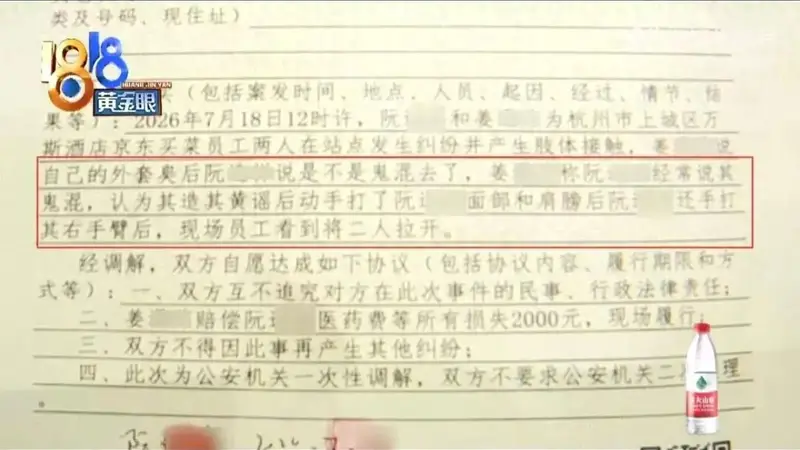 类及号码、现住址）
1818
HUANG JIN YAN
黄金眼
实（包括案发时间、地点、人员、起因、经过、情节、结
果等）：2026年7月18日12时许，阮 和姜 为杭州市上城区万
斯酒店京东买菜员工两人在站点发生纠纷并产生肢体接触，姜 说
自己的外套臭后阮 说是不是鬼混去了，姜 称阮 经常说其
鬼混，认为其造其黄谣后动手打了阮 面部和肩膀后阮 还手打
其右手臂后，现场员工看到将二人拉开。
经调解，双方自愿达成如下协议（包括协议内容、履行期限和方
式等）：一、双方互不追究对方在此次事件的民事、行政法律责任；
二、姜 赔偿阮 医药费等所有损失2000元，现场履行；
三、双方不得因此事再产生其他纠纷；
四、此次为公安机关一次性调解，双方不要求公安机关二 理
。
阮